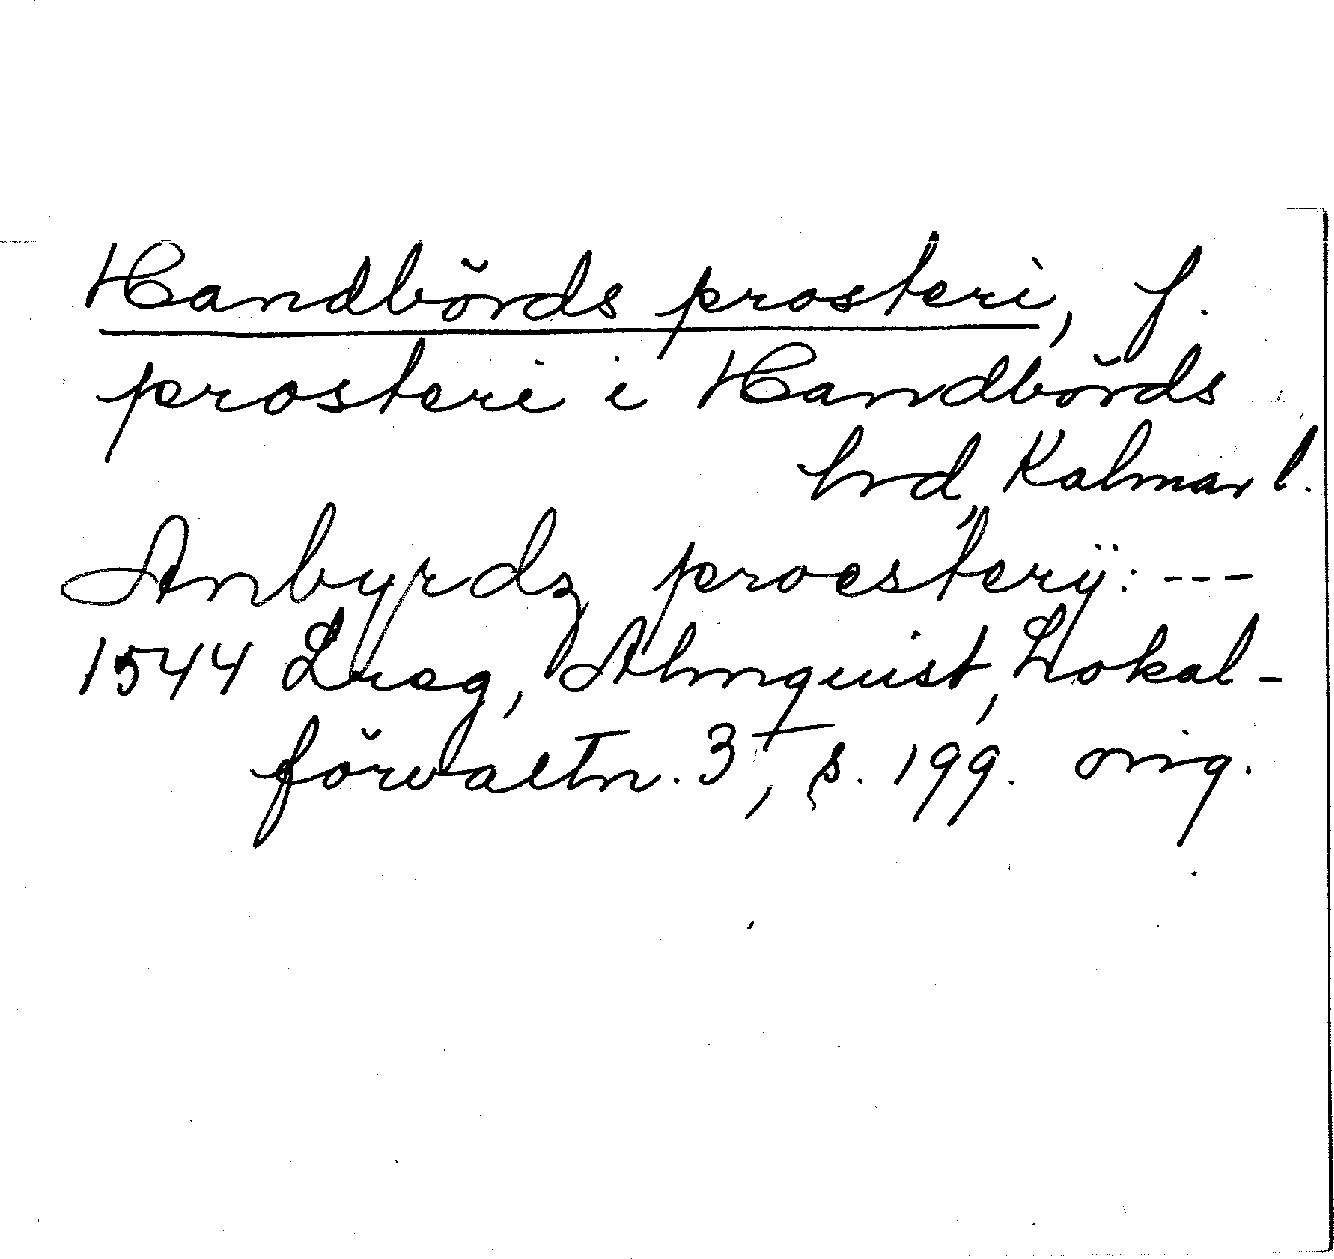 Handbörds prosteri, f.
prosteri i Handbörds
hrd, Kalmar l.
Anbyrdz proesterÿ: ---
1544 Lreg, Almquist, Lokal-
förvaltn. 3, s. 199. orig.